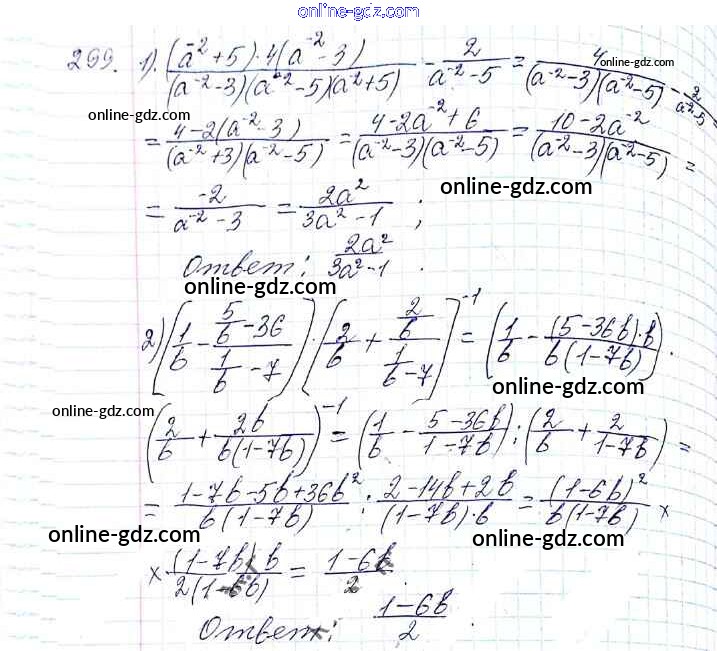 online-gdz.com
299. 1). ((a⁻² + 5) · 4(a⁻² - 3))/((a⁻² - 3)(a⁻² - 5)(a⁻² + 5)) - 2/(a⁻² - 5) = 4/((a⁻² - 3)(a⁻² - 5)) - 2/(a⁻² - 5) =
online-gdz.com
online-gdz.com
= (4 - 2(a⁻² - 3))/((a⁻² + 3)(a⁻² - 5)) = (4 - 2a⁻² + 6)/((a⁻² - 3)(a⁻² - 5)) = (10 - 2a⁻²)/((a⁻² - 3)(a⁻² - 5)) =
online-gdz.com
= -2/(a⁻² - 3) = 2a²/(3a² - 1) ;
Ответ: 2a²/(3a² - 1) .
online-gdz.com
2) [1/b - (5/b - 36)/(1/b - 7)] · [2/b + (2/b)/(1/b - 7)]⁻¹ = (1/b - ((5 - 36b) · b)/(b(1 - 7b))) ·
online-gdz.com
online-gdz.com
(2/b + 2b/(b(1 - 7b)))⁻¹ = (1/b - (5 - 36b)/(1 - 7b)) : (2/b + 2/(1 - 7b)) =
= (1 - 7b - 5b + 36b²)/(b(1 - 7b)) : (2 - 14b + 2b)/((1 - 7b) · b) = (1 - 6b)²/(b(1 - 7b)) ×
online-gdz.com
online-gdz.com
× ((1 - 7b) b)/(2(1 - 6b)) = (1 - 6b)/2 .
Ответ: (1 - 6b)/2 .